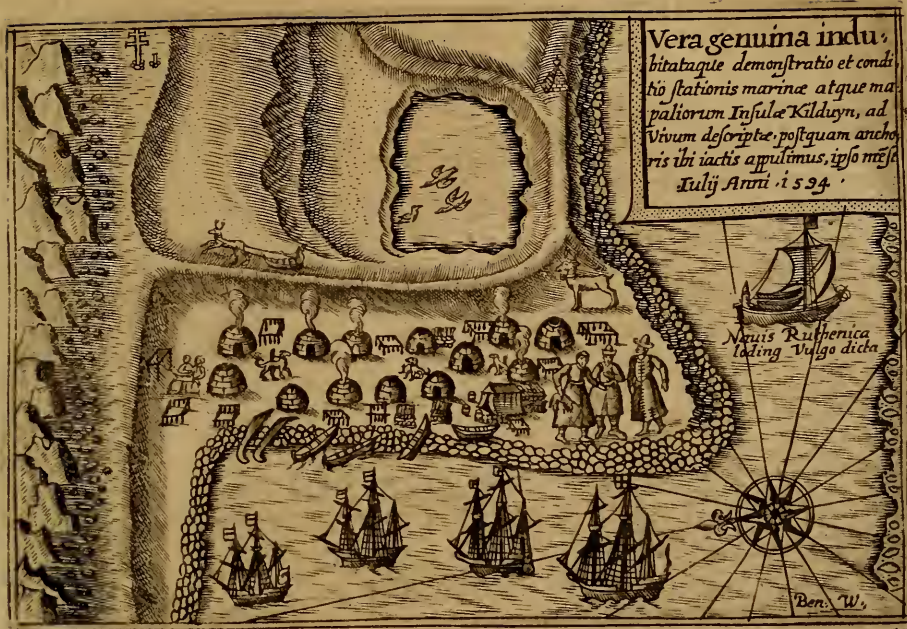 Vera genuina indu-
bitataque demonſtratio et condi
tio ſtationis marinæ atque ma
paliorum Inſulæ Kilduyn, ad
Vivum deſcriptæ, poſtquam ancho
ris ibi iactis appulimus, ipſo mẽſe
Iulij Anni · 1594 ·
Nauis Ruthenica
loding Vulgo dicta
Ben: W:,